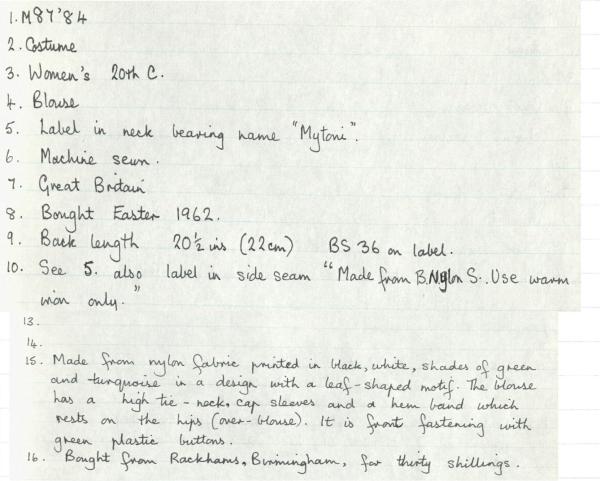 1. M87'84
2. Costume
3. Women's 20th C.
4. Blouse
5. Label in neck bearing name "Mytoni".
6. Machine sewn.
7. Great Britain
8. Bought Easter 1962.
9. Back length 20½ ins (22cm) BS 36 on label.
10. See 5. also label in side seam "Made from B.Nylon S. Use warm
iron only."
13.
14.
15. Made from nylon fabric printed in black, white, shades of green
and turquoise in a design with a leaf-shaped motif. The blouse
has a high tie-neck, cap sleeves and a hem band which
rests on the hips (over-blouse). It is front fastening with
green plastic buttons.
16. Bought from Rackhams, Birmingham, for thirty shillings.